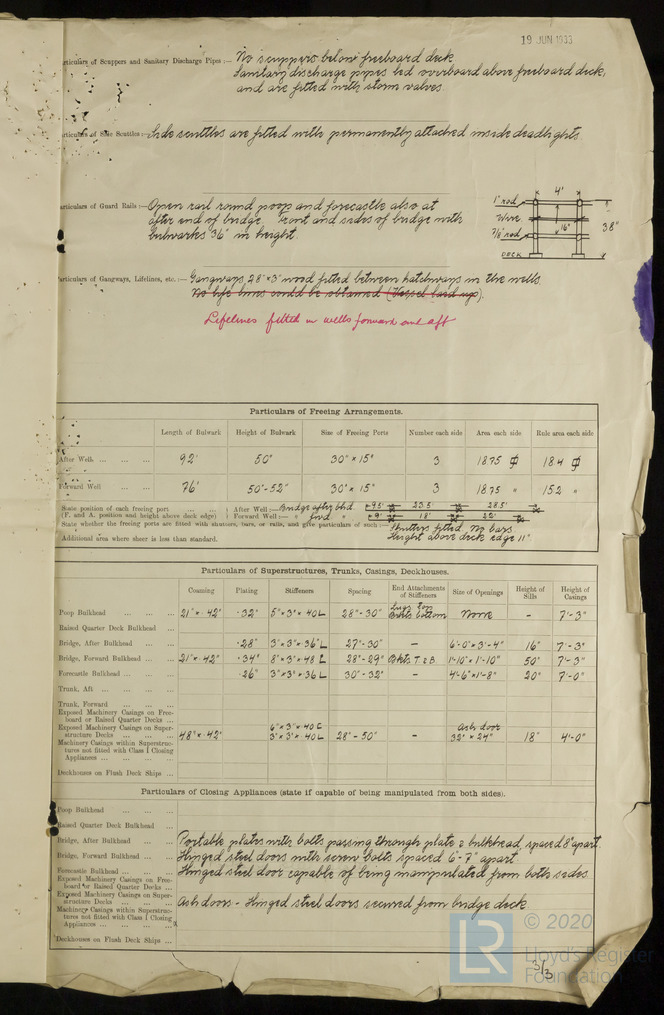 19 JUN 1933
Particulars of Scuppers and Sanitary Discharge Pipes :— No scuppers below freeboard deck
Sanitary discharge pipes led overboard above freeboard deck,
and are fitted with storm valves.
Particulars of Side Scuttles :— Side scuttles are fitted with permanently attached inside deadlights.
Particulars of Guard Rails :— Open rail round poop and forecastle also at
after end of bridge. Front and sides of bridge with
bulwarks 36" in height.
4'
1" rod
Wire
16"
7/8" rod
38"
DECK
Particulars of Gangways, Lifelines, etc. :— Gangways 28" × 3" wood fitted between hatchways in the wells
No life lines could be obtained (Vessel laid up).
Lifelines fitted in wells forward and aft
Particulars of Freeing Arrangements.
Length of Bulwark Height of Bulwark Size of Freeing Ports Number each side Area each side Rule area each side
After Well ... ... ... 92' 50" 30" × 15" 3 18.75 184
Forward Well ... ... 76' 50"-52" 30" × 15" 3 18.75 " 15.2 "
State position of each freeing port ... ... ... After Well :— Bridge after bhd 9.5' 23.5' 28.5'
(F. and A. position and height above deck edge) Forward Well :— " fwd " 9' 18' 22'
State whether the freeing ports are fitted with shutters, bars, or rails, and give particulars of such :— Shutters fitted. No bars
Additional area where sheer is less than standard. Height above deck edge 11"
Particulars of Superstructures, Trunks, Casings, Deckhouses.
Coaming Plating Stiffeners Spacing End Attachments of Stiffeners Size of Openings Height of Sills Height of Casings
Poop Bulkhead ... ... ... 21" × .42" .32" 5" × 3" × .40 L 28"-30" Lugs top Bkts bottom None - 7'-3"
Raised Quarter Deck Bulkhead ...
Bridge, After Bulkhead ... ... .28" 3" × 3" × .36" L 27"-30" - 6'-0" × 3'-4" 16" 7'-3"
Bridge, Forward Bulkhead ... ... 21" × .42" .34" 8" × 3" × .48 C 28"-29" Bkts. T & B. 1'-10" × 1'-10" 50" 7'-3"
Forecastle Bulkhead ... ... .26" 3" × 3" × .36 L 30"-32" - 4'-6" × 1'-8" 20" 7'-0"
Trunk, Aft ... ... ... ...
Trunk, Forward ... ... ...
Exposed Machinery Casings on Free-
board or Raised Quarter Decks ...
Exposed Machinery Casings on Super- 6" × 3" × .40 C Ash door
structure Decks ... ... ... 48" × .42" 3" × 3" × .40 L 28"-50" - 32" × 24" 18" 4'-0"
Machinery Casings within Superstruc-
tures not fitted with Class I Closing
Appliances ... ... ...
Deckhouses on Flush Deck Ships ...
Particulars of Closing Appliances (state if capable of being manipulated from both sides).
Poop Bulkhead ... ... ...
Raised Quarter Deck Bulkhead ...
Bridge, After Bulkhead ... ... Portable plates with bolts passing through plate & bulkhead, spaced 8" apart.
Bridge, Forward Bulkhead ... ... Hinged steel doors with screw bolts spaced 6"-7" apart
Forecastle Bulkhead ... ... Hinged steel door capable of being manipulated from both sides.
Exposed Machinery Casings on Free-
board or Raised Quarter Decks ...
Exposed Machinery Casings on Super-
structure Decks ... ... ... Ash doors - Hinged steel doors secured from bridge deck
Machinery Casings within Superstruc-
tures not fitted with Class I Closing
Appliances ... ... ...
Deckhouses on Flush Deck Ships ...
LR © 2020
Lloyd's Register
Foundation
3/3